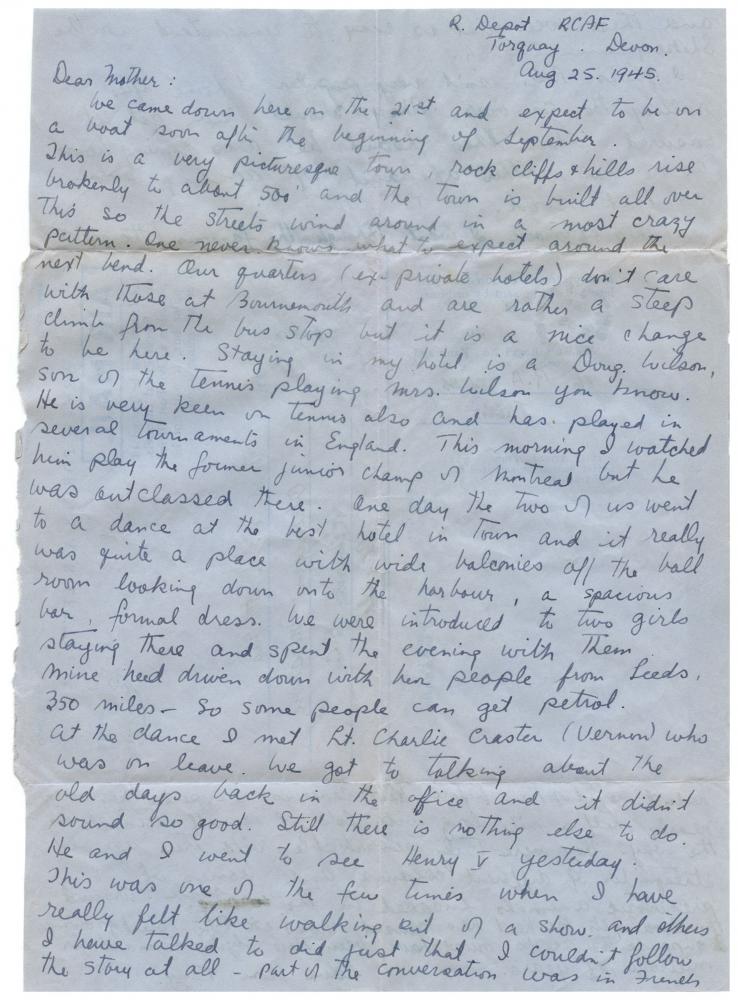 R. Depot RCAF
Torquay. Devon.
Aug 25. 1945.
Dear Mother:
We came down here on the 21st and expect to be on
a boat soon after the beginning of September.
This is a very picturesque town, rock cliffs & hills rise
brokenly to about 500' and the town is built all over
this so the streets wind around in a most crazy
pattern. One never knows what to expect around the
next bend. Our quarters (ex-private hotels) don't care
with those at Bournemouth and are rather a steep
climb from the bus stop but it is a nice change
to be here. Staying in my hotel is a Doug. Wilson,
son of the tennis playing Mrs. Wilson you know.
He is very keen on tennis also and has played in
several tournaments in England. This morning I watched
him play the former junior champ of Montreal but he
was outclassed there. One day the two of us went
to a dance at the best hotel in town and it really
was quite a place with wide balconies off the ball
room looking down onto the harbour, a spacious
bar, formal dress. We were introduced to two girls
staying there and spent the evening with them.
Mine had driven down with her people from Leeds,
350 miles - so some people can get petrol.
At the dance I met Lt. Charlie Craster (Vernon) who
was on leave. We got to talking about the
old days back in the office and it didn't
sound so good. Still there is nothing else to do.
He and I went to see Henry V yesterday.
This was one of the few times when I have
really felt like walking out of a show and others
I have talked to did just that. I couldn't follow
the story at all - part of the conversation was in French